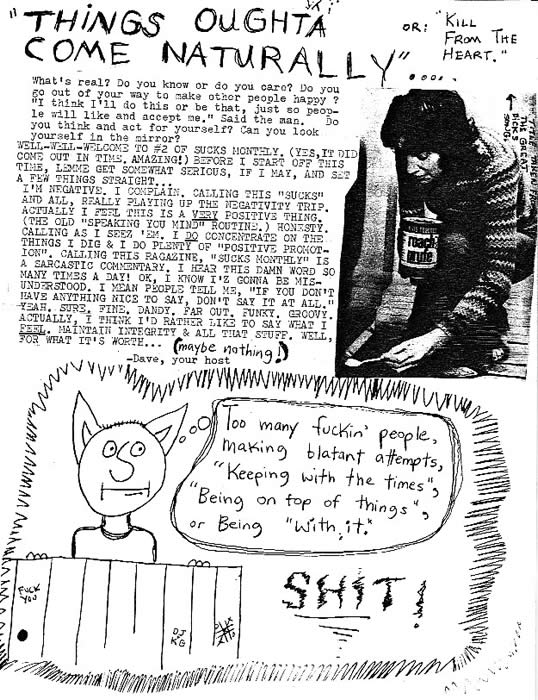 "THINGS OUGHTA
COME NATURALLY".....
OR: "KILL
FROM THE
HEART."
What's real? Do you know or do you care? Do you
go out of your way to make other people happy?
"I think I'll do this or be that, just so peop-
le will like and accept me." Said the man. Do
you think and act for yourself? Can you look
yourself in the mirror?
WELL-WELL-WELCOME TO #2 OF SUCKS MONTHLY. (YES, IT DID
COME OUT IN TIME. AMAZING!) BEFORE I START OFF THIS
TIME, LEMME GET SOMEWHAT SERIOUS, IF I MAY, AND SET
A FEW THINGS STRAIGHT...
I'M NEGATIVE. I COMPLAIN. CALLING THIS "SUCKS"
AND ALL, REALLY PLAYING UP THE NEGATIVITY TRIP.
ACTUALLY I FEEL THIS IS A VERY POSITIVE THING.
(THE OLD "SPEAKING YOU MIND" ROUTINE.) HONESTY.
CALLING AS I SEEX 'EM. I DO CONCENTRATE ON THE
THINGS I DIG & I DO PLENTY OF "POSITIVE PROMOT-
ION". CALLING THIS RAGAZINE, "SUCKS MONTHLY" IS
A SARCASTIC COMMENTARY. I HEAR THIS DAMN WORD SO
MANY TIMES A DAY! OK, I KNOW I'Z GONNA BE MIS-
UNDERSTOOD. I MEAN PEOPLE TELL ME, "IF YOU DON'T
HAVE ANYTHING NICE TO SAY, DON'T SAY IT AT ALL."
YEAH. SURE. FINE. DANDY. FAR OUT. FUNKY. GROOVY.
ACTUALLY, I THINK I'D RATHER LIKE TO SAY WHAT I
FEEL. MAINTAIN INTEGRITY & ALL THAT STUFF. WELL,
FOR WHAT IT'S WORTH... (maybe nothing!)
-Dave, your host
THE GREAT
roach
Too many fuckin' people,
making blatant attempts,
"Keeping with the times",
"Being on top of things",
or Being "With it."
SHIT!
FUCK
YOU
DJ
KG